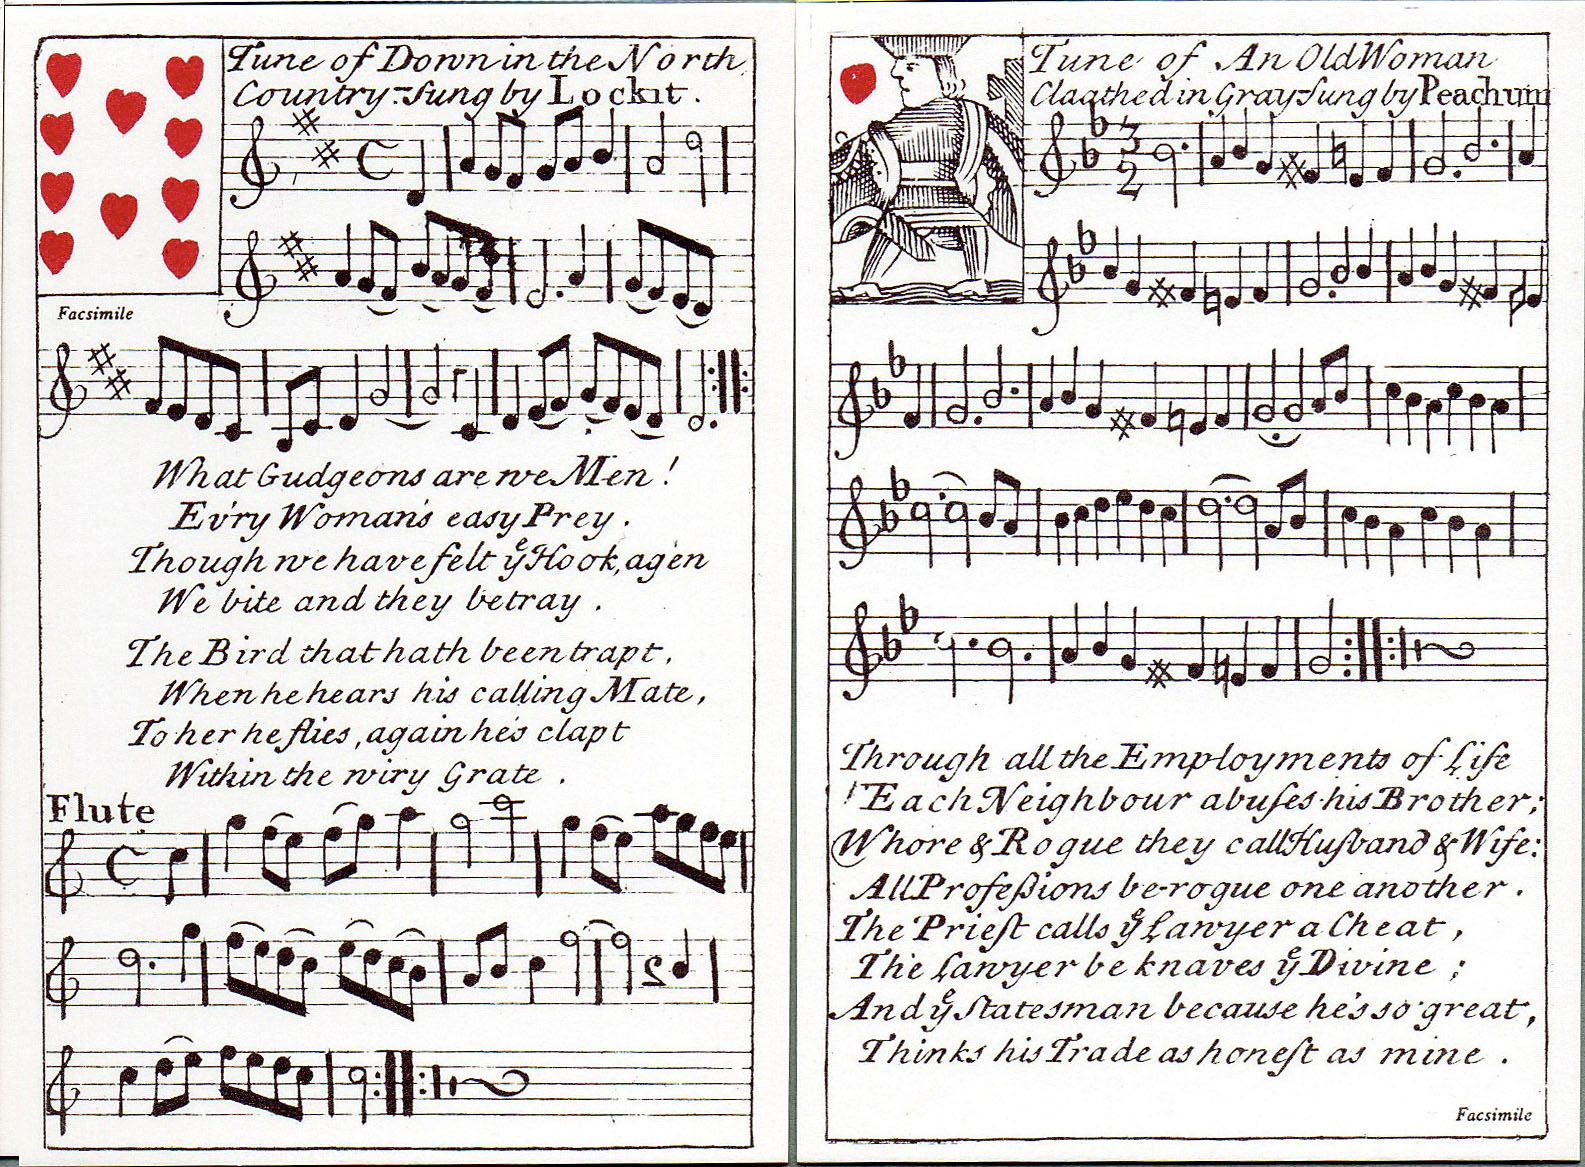 Tune of Down in the North
Country-Sung by Lockit.
Facsimile
What Gudgeons are we Men!
Ev'ry Woman's easy Prey.
Though we have felt yͤ Hook, agen
We bite and they betray.
The Bird that hath been trapt,
When he hears his calling Mate,
To her he flies, again he's clapt
Within the wiry Grate.
Flute
Tune of An Old Woman
Claathed in Gray-Sung by Peachum
Through all the Employments of Life
Each Neighbour abuſes his Brother;
Whore & Rogue they call Huſband & Wife:
All Profeßions be-rogue one another.
The Prieſt calls yͤ Lawyer a Cheat,
The Lawyer be knaves yͤ Divine;
And yͤ Statesman because he's so great,
Thinks his Trade as honeſt as mine.
Facsimile